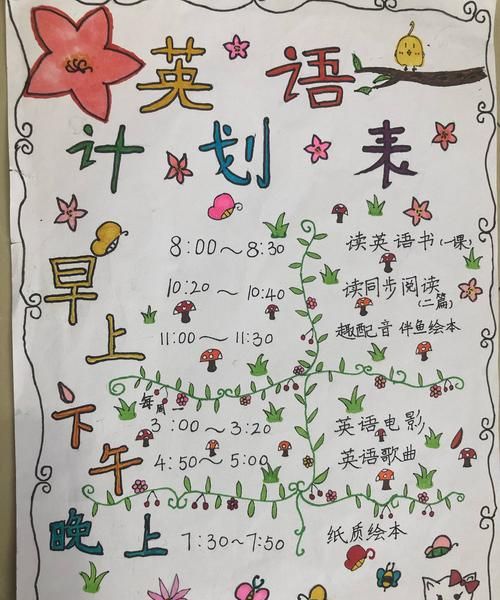 英语
计划表
早上
8:00～8:30 读英语书(一课)
10:20～10:40 读同步阅读(二篇)
11:00～11:30 趣配音 伴鱼绘本
下午
每周一
3:00～3:20 英语电影
4:50～5:00 英语歌曲
晚上 7:30~7:50 纸质绘本